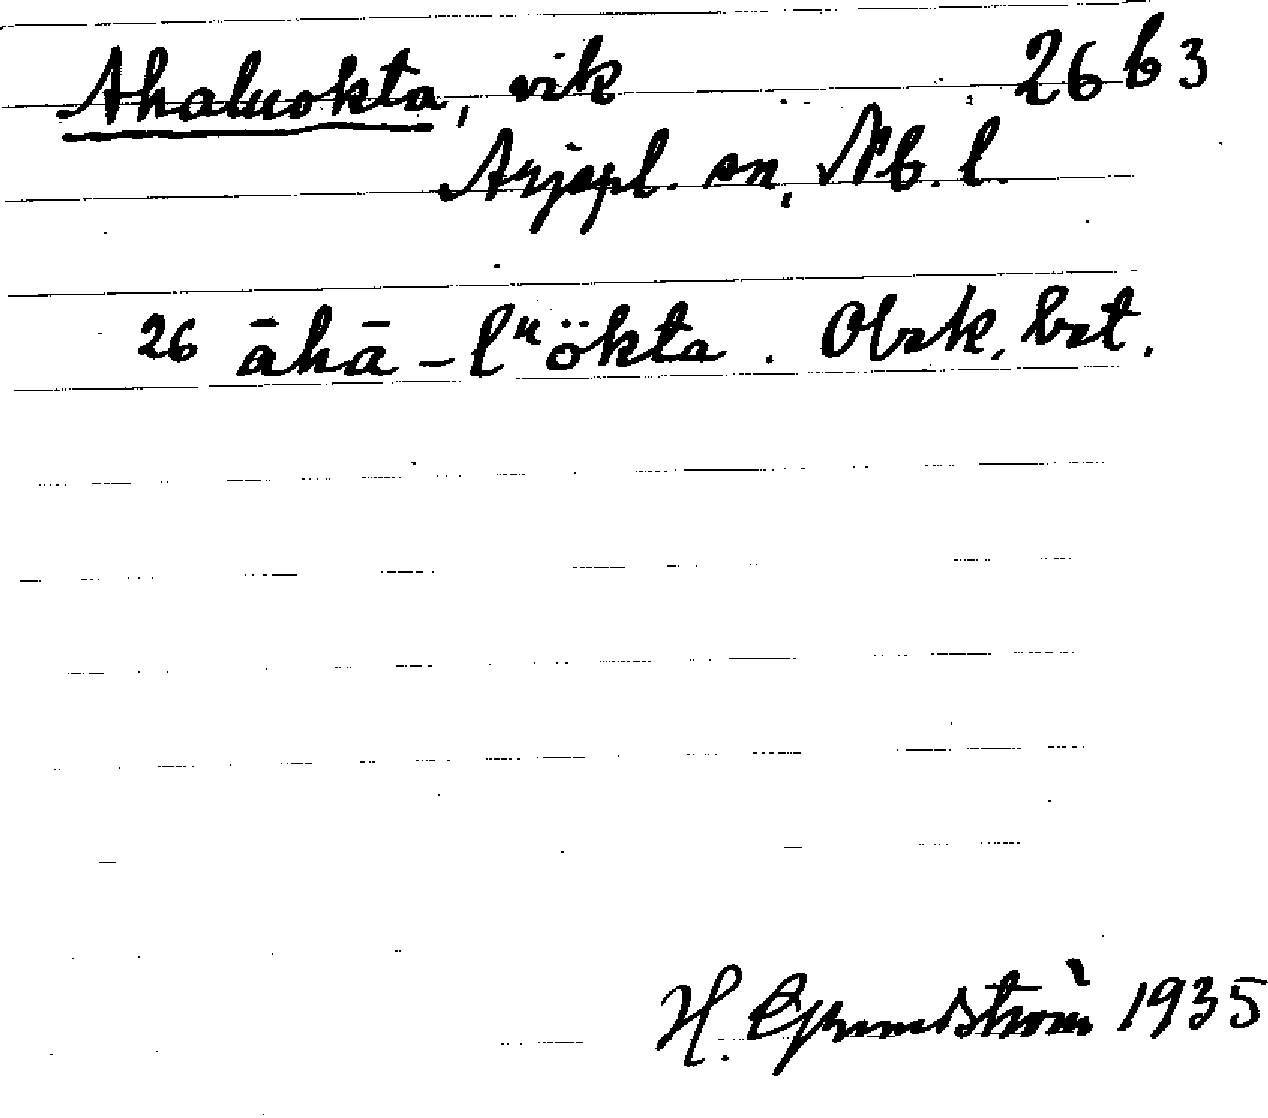 Ahaluokta, vik 26 b 3
Arjepl. sn, Nb. l.
26 āhā-lᵘökta. Obsk, bst.
H. Grundström 1935